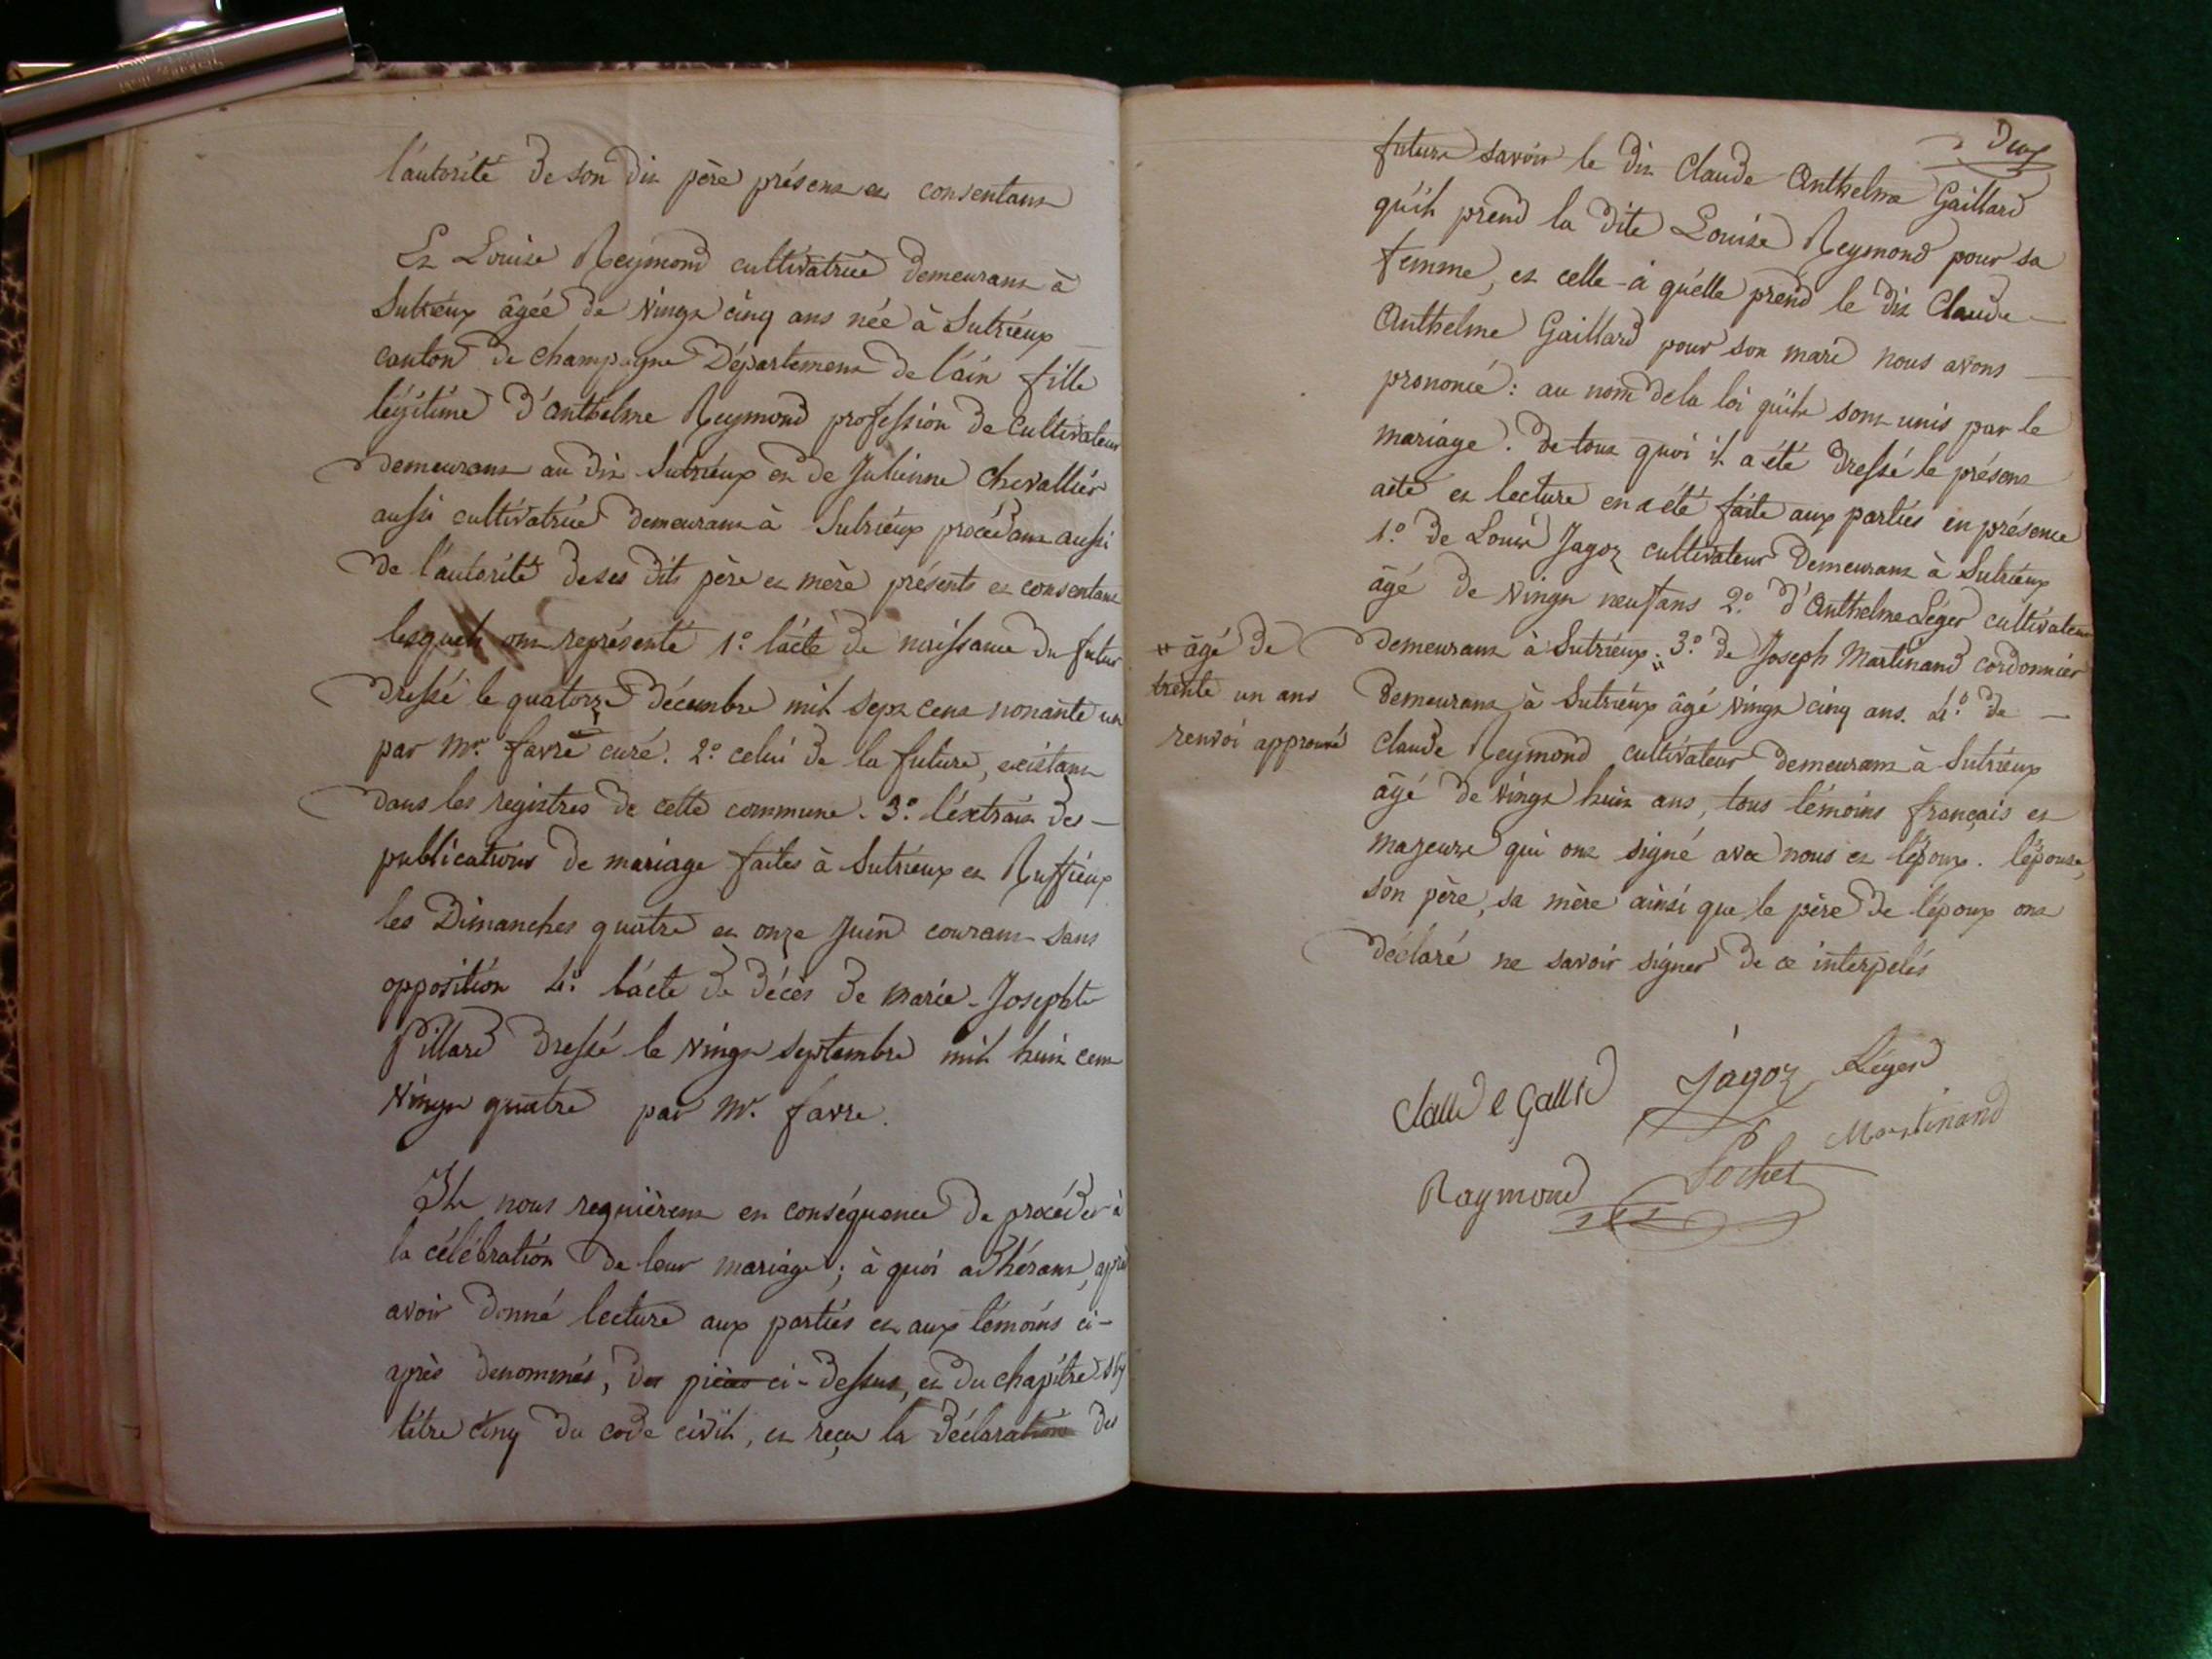 l'autorité de son dit père présent et consentant
Et Louise Reymond cultivatrice demeurant à
Sutrieux âgée de vingt cinq ans née à Sutrieux
canton de Champagne Département de l'ain fille
légitime d'Anthelme Reymond profession de Cultivateur
demeurant au dit Sutrieux et de Julienne Chevallier
aussi cultivatrice demeurant à Sutrieux procédant aussi
de l'autorité de ses dits père et mère présents et consentant
lesquels ont représenté 1.º l'acte de naissance du futur
dressé le quatorze décembre mil sept cent nonante un
par Mr. favre curé. 2.º celui de la future, existant
dans les registres de cette commune. 3.º l'extrait des -
publications de mariage faites à Sutrieux et Ruffieux
les Dimanches quatre et onze Juin courant sans
opposition 4.º l'acte de décès de marie-Josephte
Pillard dressé le vingt septembre mil huit cent
vingt quatre par Mr. favre.
Ils nous requièrent en conséquence de procéder à
la célébration de leur mariage ; à quoi adhérant, après
avoir donné lecture aux parties et aux témoins ci-
après denommés, des pièces ci-dessus, et du chapitre
titre cinq du code civil, et reçu la déclaration des
Deux
future savoir le dit Claude Anthelme Gaillard
qu'il prend la dite Louise Reymond pour sa
femme, et celle-ci qu'elle prend le dit Claude
Anthelme Gaillard pour son mari nous avons
prononcé : au nom de la loi qu'ils sont unis par le
mariage. de tout quoi il a été dressé le présent
acte et lecture en a été faite aux parties en présence
1.º de Louis Jagoz cultivateur demeurant à Sutrieux
âgé de vingt neuf ans 2.º d'Anthelme Léger cultivateur
demeurant à Sutrieux. " 3.º de Joseph Martinand cordonnier
" âgé de
trente un ans
renvoi approuvé
demeurant à Sutrieux âgé vingt cinq ans. 4.º de
Claude Reymond cultivateur demeurant à Sutrieux
âgé de vingt huit ans, tous témoins français et
majeurs qui ont signé avec nous et l'époux. l'épouse,
son père, sa mère ainsi que le père de l'époux ont
déclaré ne savoir signer de ce interpelés
Jagoz Léger
Martinand
Raymond Pochet